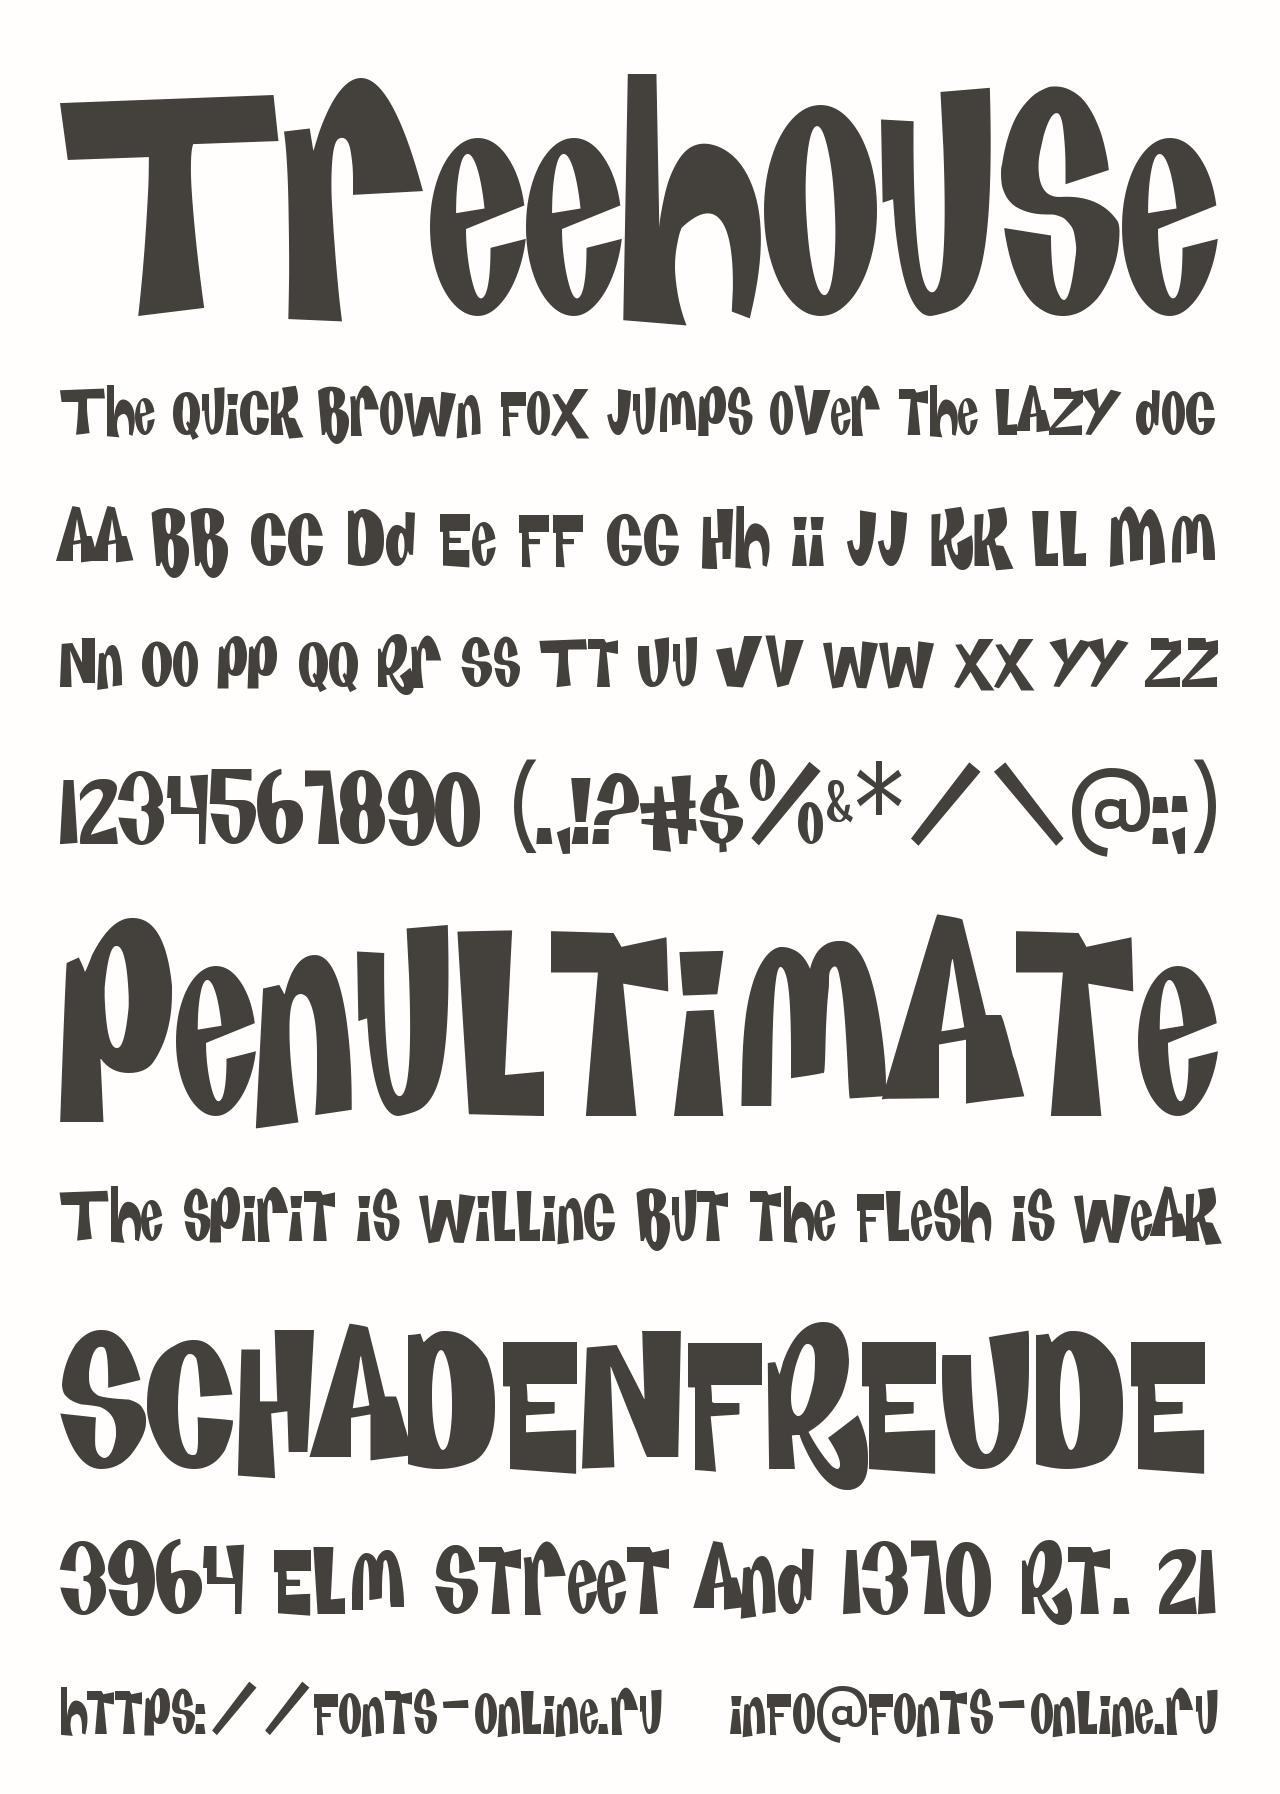 Treehouse
The quick brown fox jumps over the lazy dog
Aa Bb Cc Dd Ee Ff Gg Hh Ii Jj Kk Ll Mm
Nn Oo Pp Qq Rr Ss Tt Uu Vv Ww Xx Yy Zz
1234567890 (.,!?#$%&*/\@:;)
Penultimate
The spirit is willing but the flesh is weak
SCHADENFREUDE
3964 Elm Street and 1370 Rt. 21
https://fonts-online.ru info@fonts-online.ru